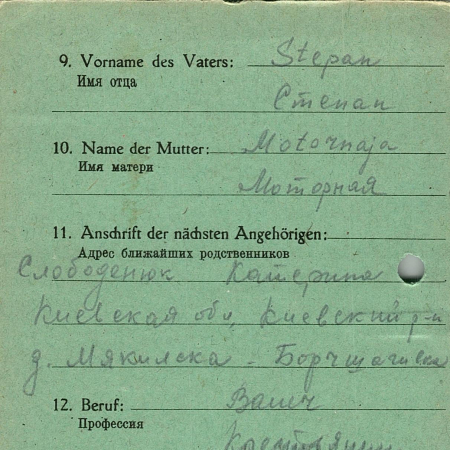 9. Vorname des Vaters: Stepan
Имя отца
Степан
10. Name der Mutter: Motornaja
Имя матери
Моторная
11. Anschrift der nächsten Angehörigen:
Адрес ближайших родственников
Слободенюк Катерина
Киевская обл, Киевский р-н
д. Мякилска - Борчщаговка
12. Beruf: Bauer
Профессия